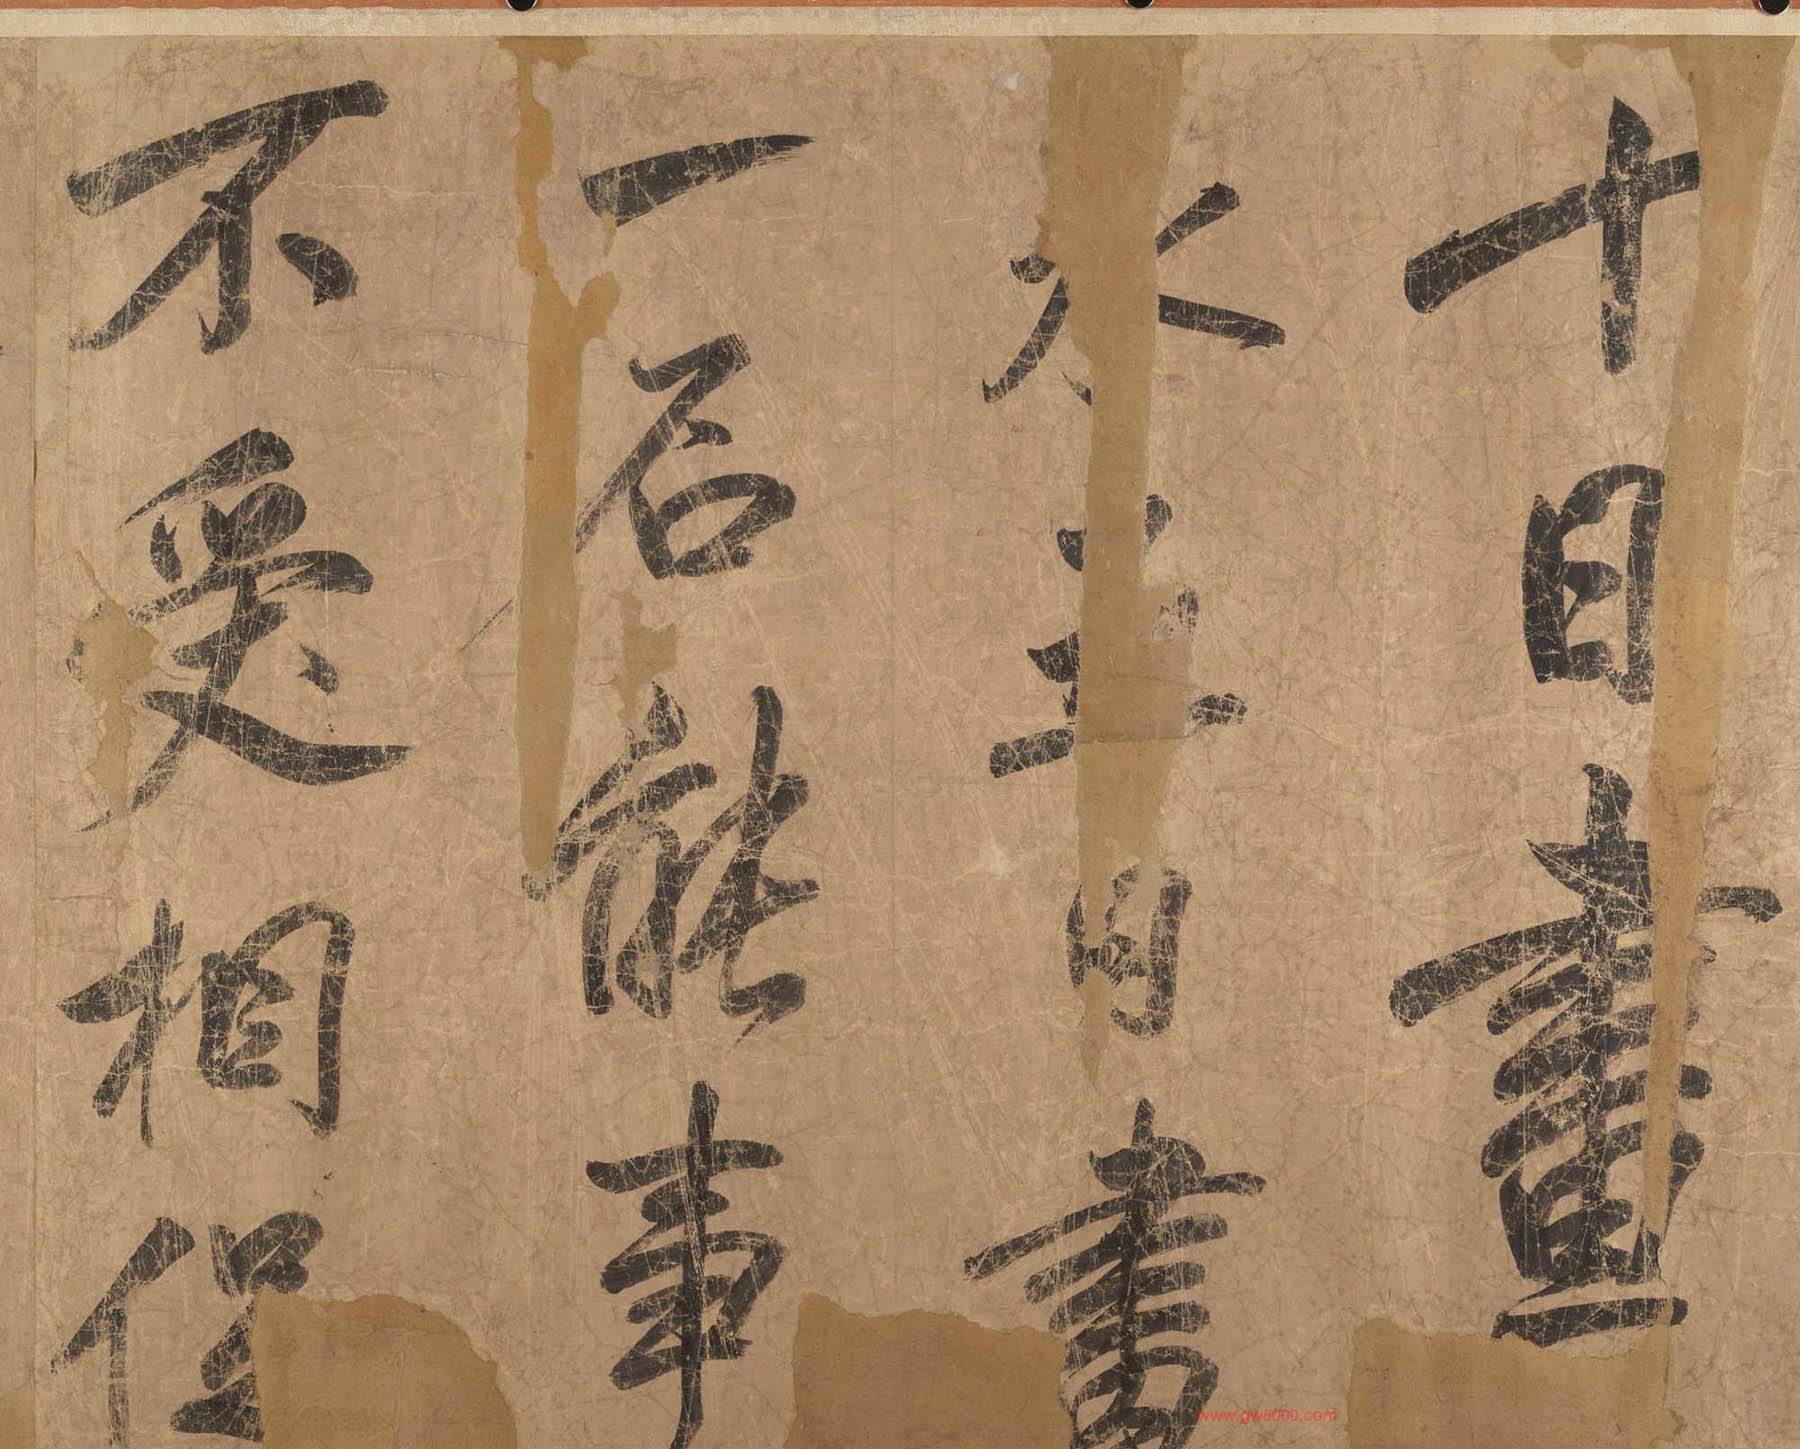 十日畫
水五日畫
一石能事
不受相促
www.gw5000.com